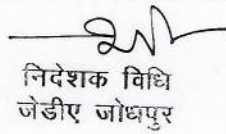 निदेशक विधि
जेडीए जोधपुर